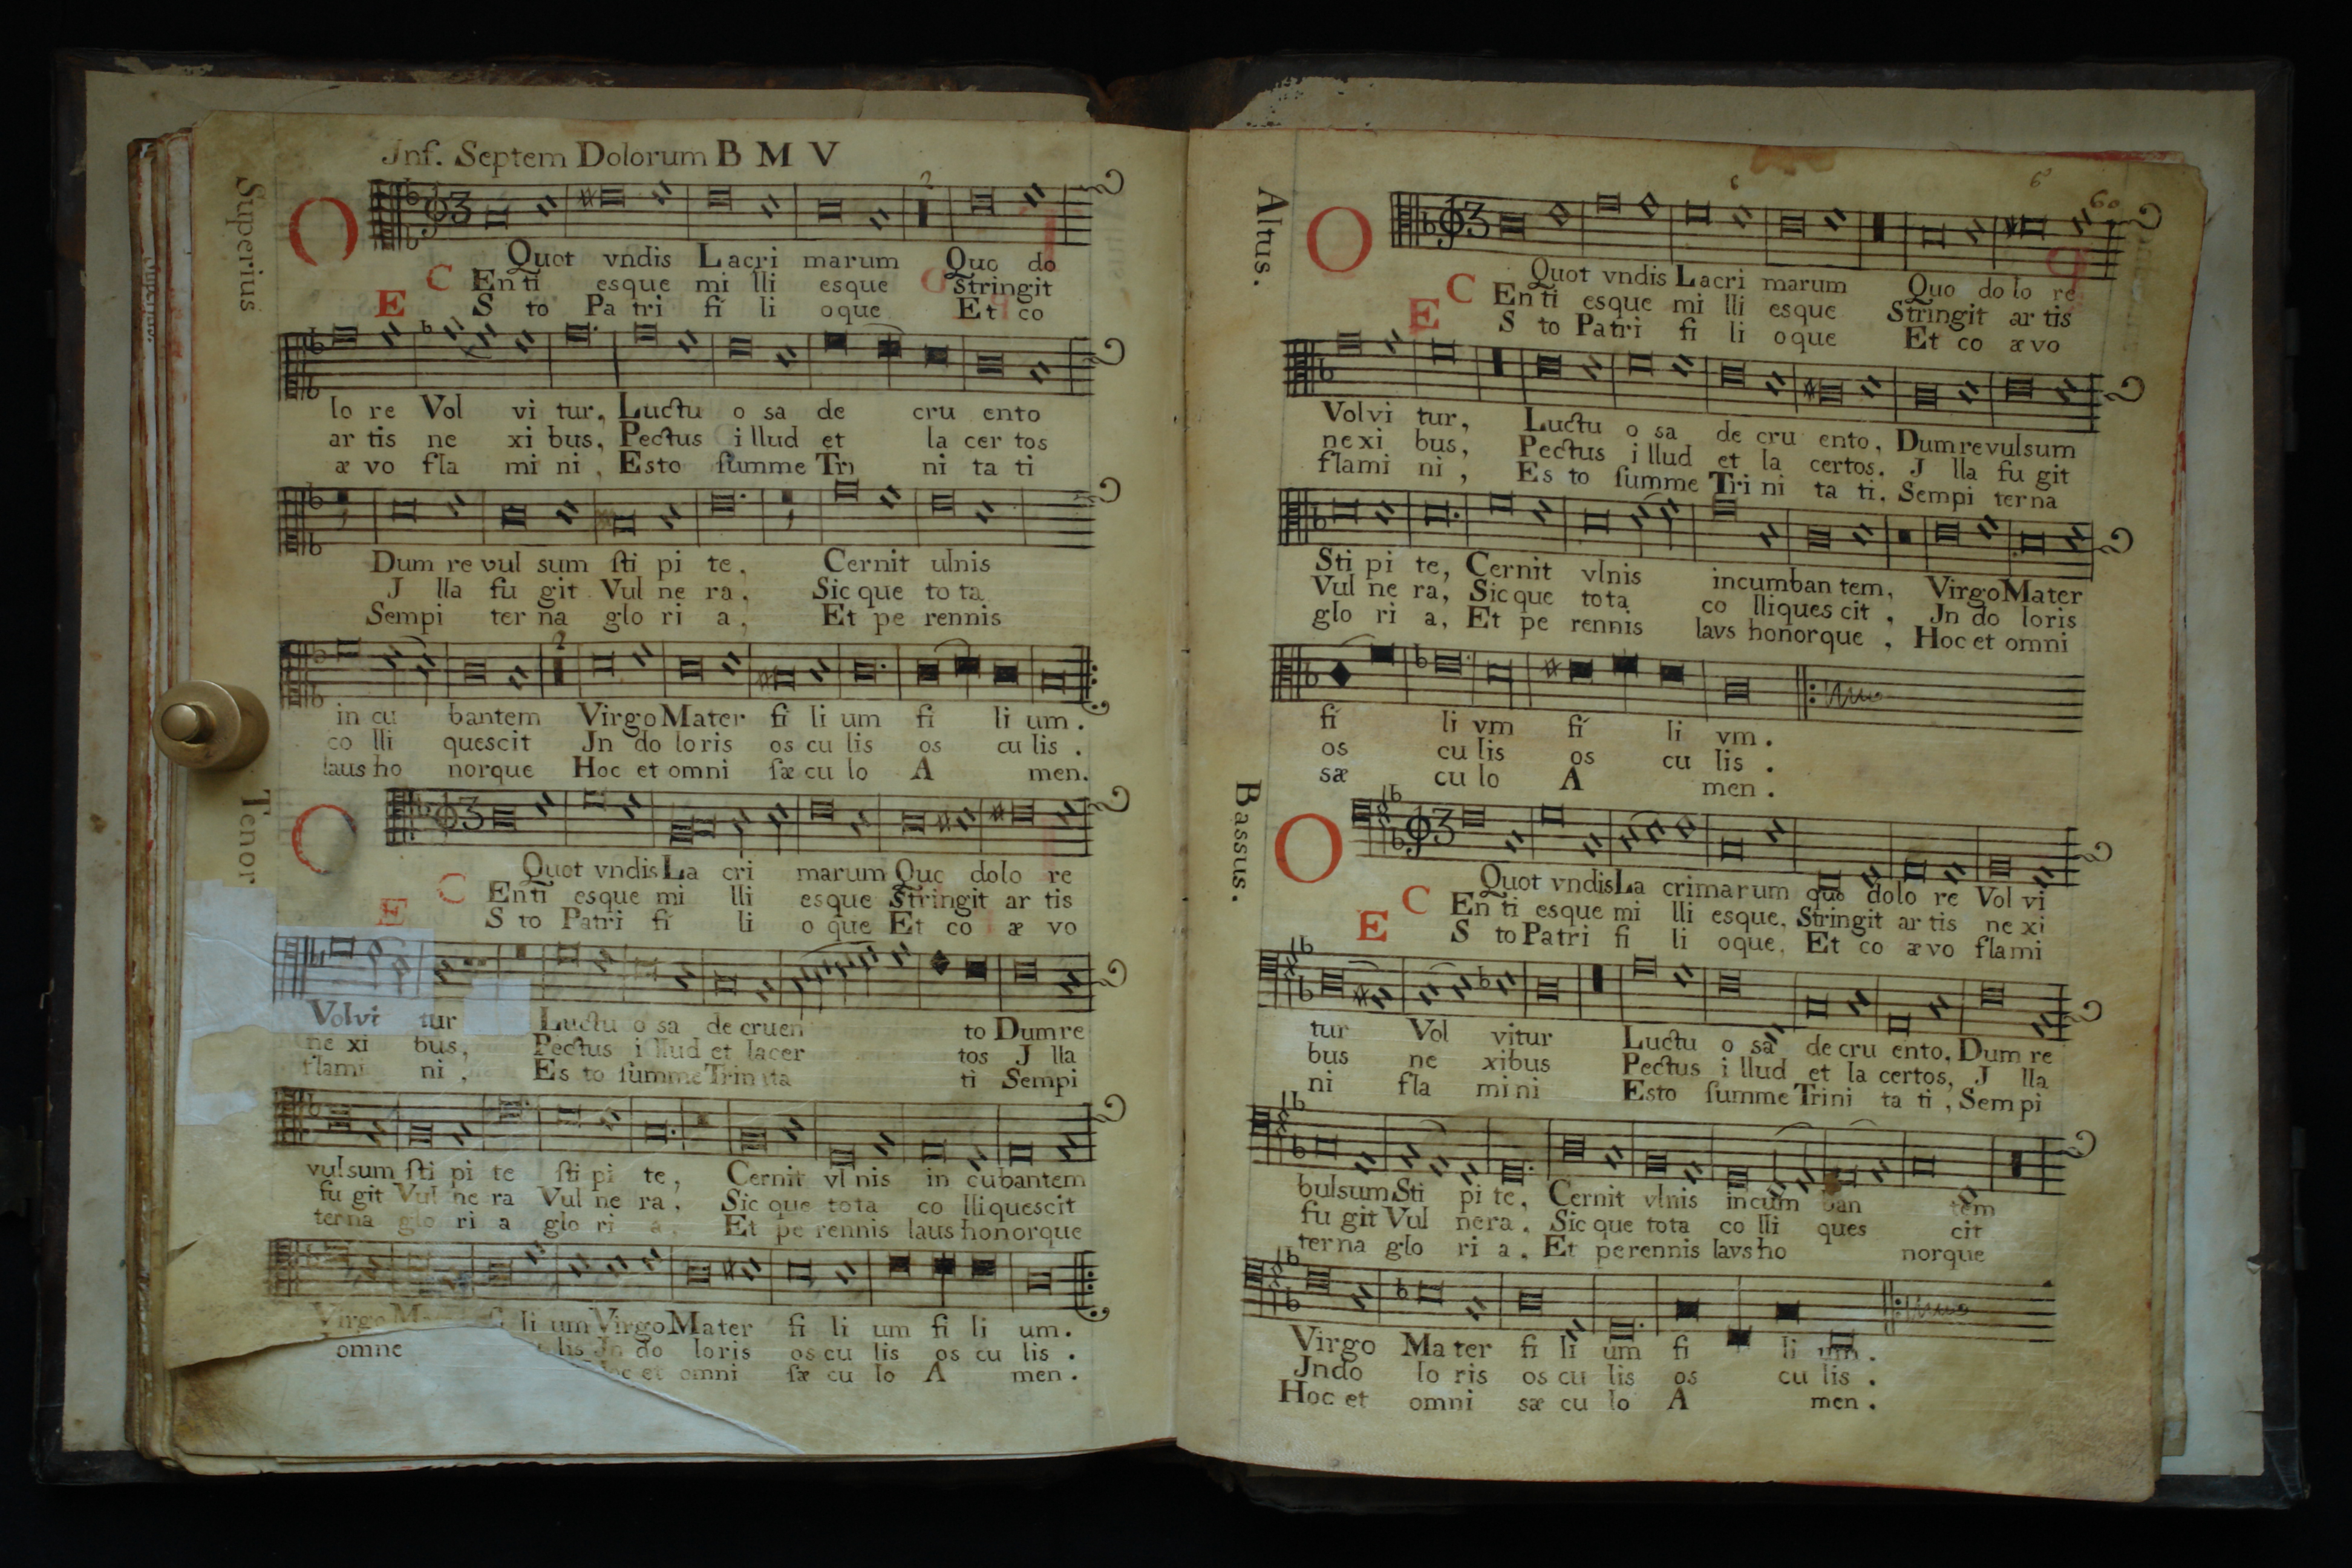 Jnf. Septem Dolorum B M V
Superius
O Quot vndis Lacri marum Quo do
C Enti esque mi lli esque Stringit
E S to Pa tri fi li oque Et co
lo re Vol vi tur, Luctu o sa de cru ento
ar tis ne xi bus, Pectus i llud et la cer tos
æ vo fla mi ni, Esto summe Tri ni ta ti
Dum re vul sum sti pi te, Cernit ulnis
J lla fu git Vul ne ra, Sic que to ta
Sempi ter na glo ri a, Et pe rennis
in cu bantem Virgo Mater fi li um fi li um.
co lli quescit Jn do loris os cu lis os cu lis.
laus ho norque Hoc et omni sæ cu lo A men.
Tenor
O Quot vndis La cri marum Quo dolo re
C Enti esque mi lli esque Stringit ar tis
E S to Patri fi li o que Et co æ vo
Volvi tur Luctu o sa de cruen to Dum re
ne xi bus, Pectus i llud et lacer tos J lla
flami ni, Es to summe Trinita ti Sempi
vulsum sti pi te sti pi te, Cernit vl nis in cubantem
fu git Vul ne ra Vul ne ra, Sic que tota co lli quescit
terna glo ri a glo ri a, Et pe rennis laus honorque
Virgo li um Virgo Mater fi li um fi li um.
omne lis Jn do loris os cu lis os cu lis.
Hoc et omni sæ cu lo A men.
60
Altus.
O Quot vndis Lacri marum Quo do lo re
C Enti esque mi lli esque Stringit ar tis
E S to Patri fi li oque Et co ævo
Volvi tur, Luctu o sa de cru ento, Dum revulsum
nexi bus, Pectus i llud et la certos. J lla fu git
flami ni, Es to summe Tri ni ta ti, Sempi terna
Sti pi te, Cernit vlnis incumban tem, Virgo Mater
Vul ne ra, Sic que tota co lliques cit, Jn do loris
glo ri a, Et pe rennis lavs honorque, Hoc et omni
fi li vm fi li vm.
os cu lis os cu lis.
sæ cu lo A men.
Bassus.
O Quot vndis La crimarum quo dolo re Vol vi
C En ti esque mi lli esque, Stringit ar tis ne xi
E S to Patri fi li oque, Et co ævo flami
tur Vol vitur Luctu o sa de cru ento, Dum re
bus ne xibus Pectus i llud et la certos, J lla
ni fla mi ni Esto summe Trini ta ti, Sempi
bulsum Sti pi te, Cernit vlnis incum ban tem
fu git Vul nera. Sic que tota co lli ques cit
terna glo ri a. Et perennis lavs ho norque
Virgo Mater fi li um fi li um.
Jndo lo ris os cu lis os cu lis.
Hoc et omni sæ cu lo A men.